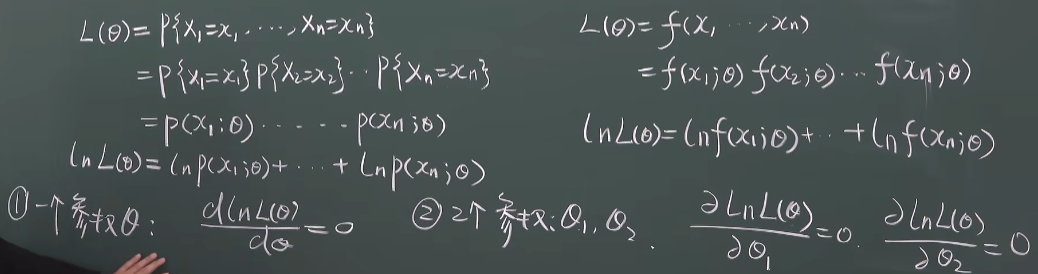 L(θ)=P{X₁=x₁,⋯,Xₙ=xₙ}
=P{X₁=x₁}P{X₂=x₂}⋯P{Xₙ=xₙ}
=p(x₁;θ)⋯⋯p(xₙ;θ)
lnL(θ)=lnp(x₁;θ)+⋯+lnp(xₙ;θ)
L(θ)=f(x₁⋯,xₙ)
=f(x₁;θ)f(x₂;θ)⋯f(xₙ;θ)
lnL(θ)=lnf(x₁;θ)+⋯+lnf(xₙ;θ)
①一个参数θ: dlnL(θ)/dθ=0
②2个参数:θ₁,θ₂. ∂lnL(θ)/∂θ₁=0. ∂lnL(θ)/∂θ₂=0